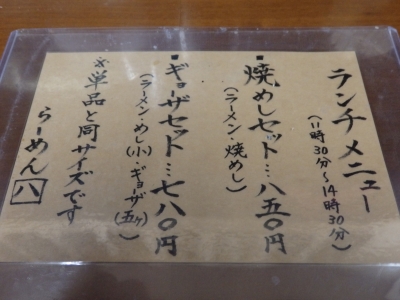 ランチメニュー
(11時30分〜14時30分)
■焼めしセット…八五〇円
(ラーメン・焼めし)
■ギョザセット…七八〇円
(ラーメン・めし(小)・ギョーザ(五ヶ))
※単品と同サイズです
らーめん八